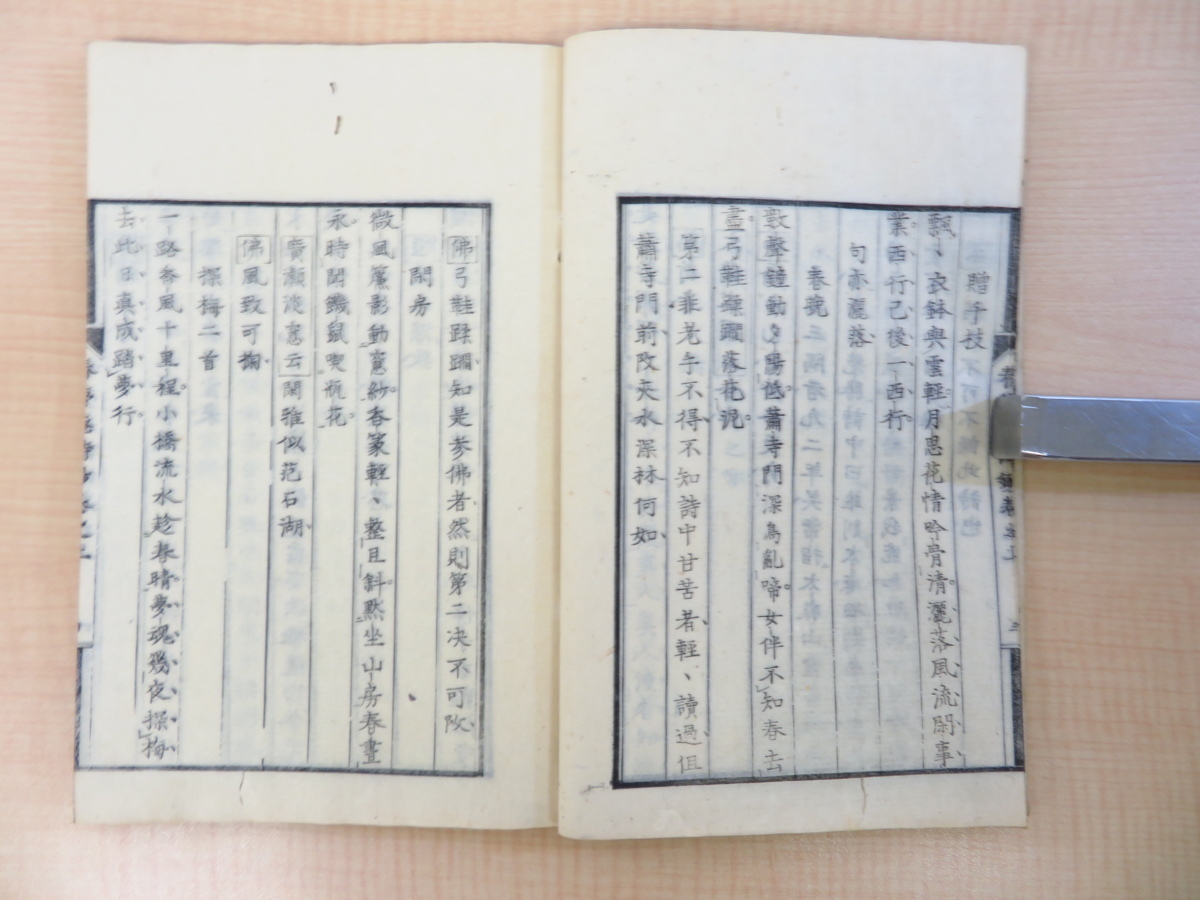 贈千技
飄、衣鉢與雲輕月思花情吟骨清灑落風流閑事
業西行已後一西行
句亦灑落
春晚
數聲鐘動夕陽低蕭寺門深鳥亂啼女伴不知春去
盡弓鞋蹂躪落花泥
第二乖老手不得不知詩中甘苦者輕、讀過但
蕭寺門前改夾水深林何如
佛弓鞋蹂躪知是參佛者然則第二决不可改
閑房
微風簾影動窻紗香篆輕、整且斜默坐山房春晝
永時聞鵝鼠喫瓶花
賣瀬淡窓云閑雅似范石湖
佛風致可掬
探梅二首
一路香風十里程小橋流水趁春晴夢魂幾夜探梅
去此日真成踏夢行